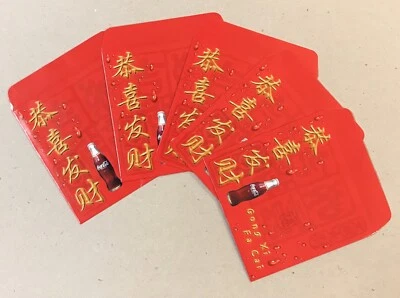 恭喜发财
Coca-Cola
恭喜发财
恭喜
恭喜发财
恭喜发财
Coca-Cola
Gong Xi
Fa Cai